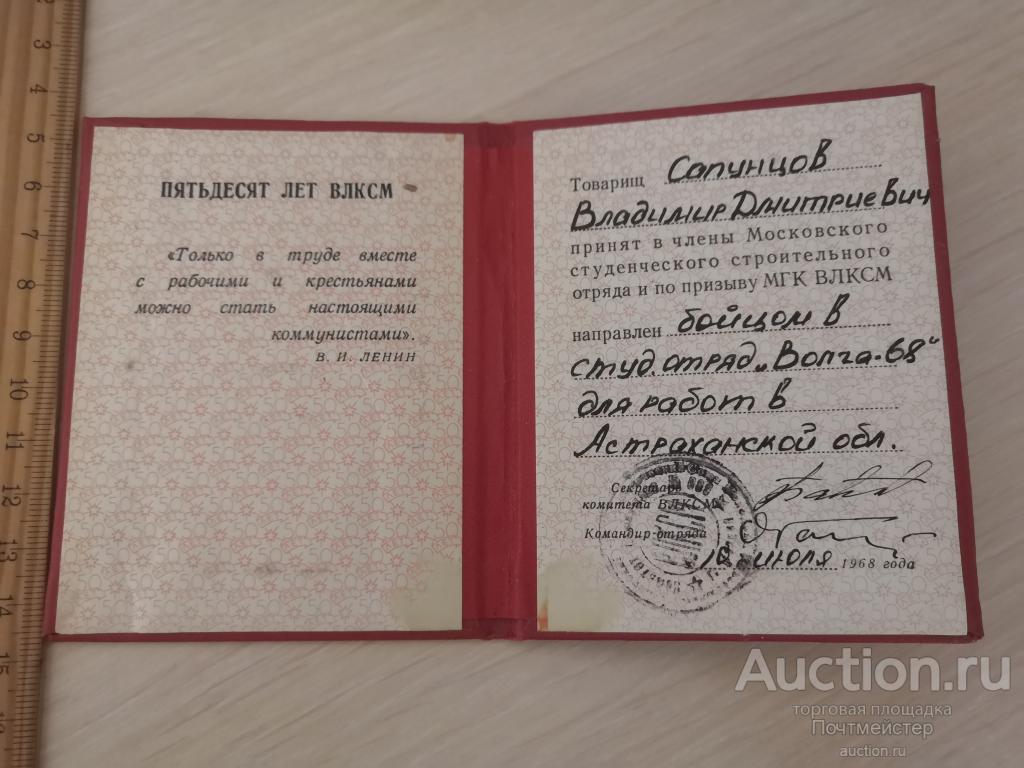 ПЯТЬДЕСЯТ ЛЕТ ВЛКСМ
«Только в труде вместе
с рабочими и крестьянами
можно стать настоящими
коммунистами».
В. И. ЛЕНИН
Товарищ Сапунцов
Владимир Дмитриевич
принят в члены Московского
студенческого строительного
отряда и по призыву МГК ВЛКСМ
направлен бойцом в
студ. отряд „Волга-68“
для работ в
Астраханской обл.
Секретарь
комитета ВЛКСМ
Командир отряда
10 июля 1968 года
2
3
4
5
6
7
8
9
10
11
12
13
14
15
Auction.ru
торговая площадка
Почтмейстер
auction.ru